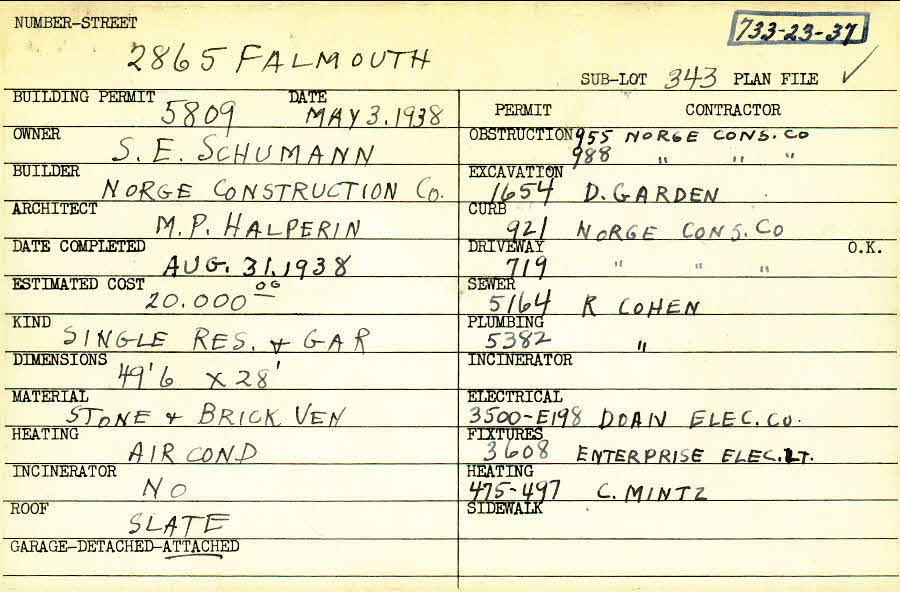 NUMBER-STREET
733-23-37
2865 FALMOUTH
SUB-LOT 343 PLAN FILE ✓
BUILDING PERMIT 5809 DATE MAY 3. 1938
OWNER S. E. SCHUMANN
BUILDER NORGE CONSTRUCTION CO.
ARCHITECT M. P. HALPERIN
DATE COMPLETED AUG. 31. 1938
ESTIMATED COST 20.000 00
KIND SINGLE RES. & GAR
DIMENSIONS 49'6 x 28'
MATERIAL STONE & BRICK VEN
HEATING AIR COND
INCINERATOR NO
ROOF SLATE
GARAGE-DETACHED-ATTACHED
PERMIT CONTRACTOR
OBSTRUCTION 955 NORGE CONS. CO
988 " " "
EXCAVATION 1654 D. GARDEN
CURB 921 NORGE CONS. CO
DRIVEWAY 719 " " " O.K.
SEWER 5164 R COHEN
PLUMBING 5382 "
INCINERATOR
ELECTRICAL 3500-E198 DOAN ELEC. CO.
FIXTURES 3608 ENTERPRISE ELEC. LT.
HEATING 475-497 C. MINTZ
SIDEWALK